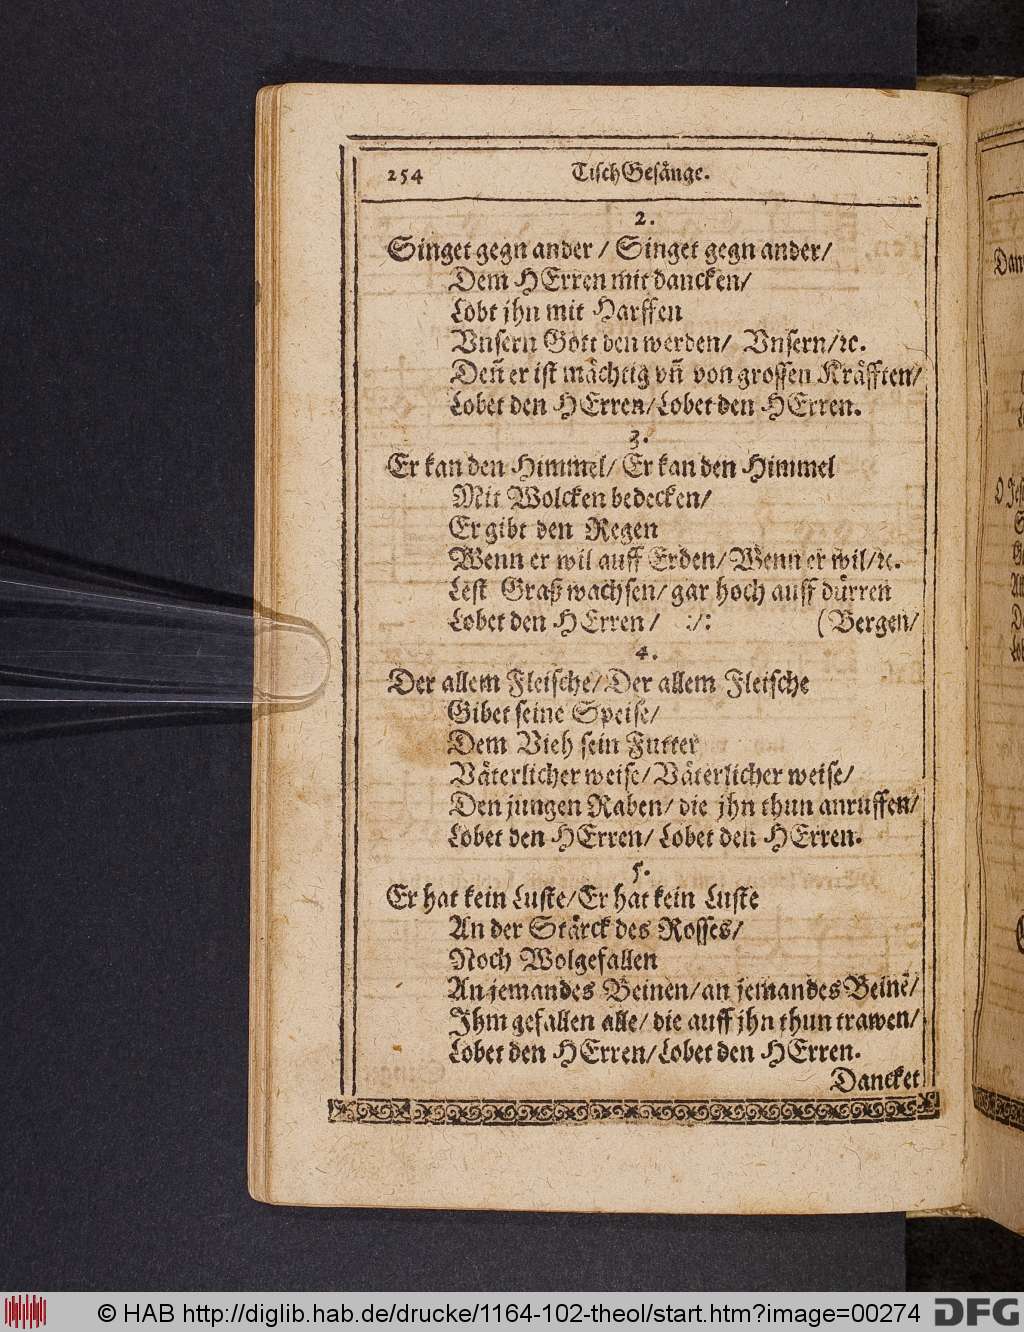 254 TischGesånge.
2.
Singet gegn ander / Singet gegn ander/
Dem HErren mit dancken/
Lobt jhn mit Harffen
Vnsern Gott den werden/ Vnsern/ꝛc.
Deñ er ist måchtig vñ von grossen Kråfften/
Lobet den HErren/Lobet den HErren.
3.
Er kan den Himmel/ Er kan den Himmel
Mit Wolcken bedecken/
Er gibt den Regen
Wenn er wil auff Erden/ Wenn er wil/ꝛc.
Lest Graß wachsen/ gar hoch auff důrren
Lobet den HErren / :/: (Bergen/
4.
Der allem Fleische/ Der allem Fleische
Gibet seine Speise/
Dem Vieh sein Futter
Våterlicher weise/ Våterlicher weise/
Den jungen Raben/ die jhn thun anruffen/
Lobet den HErren/ Lobet den HErren.
5.
Er hat kein Luste/Er hat kein Luste
An der Stårck des Rosses/
Noch Wolgefallen
An jemandes Beinen/an jemandes Beinē/
Ihm gefallen alle/ die auff jhn thun trawen/
Lobet den HErren/Lobet den HErren.
Dancket
© HAB http://diglib.hab.de/drucke/1164-102-theol/start.htm?image=00274 DFG